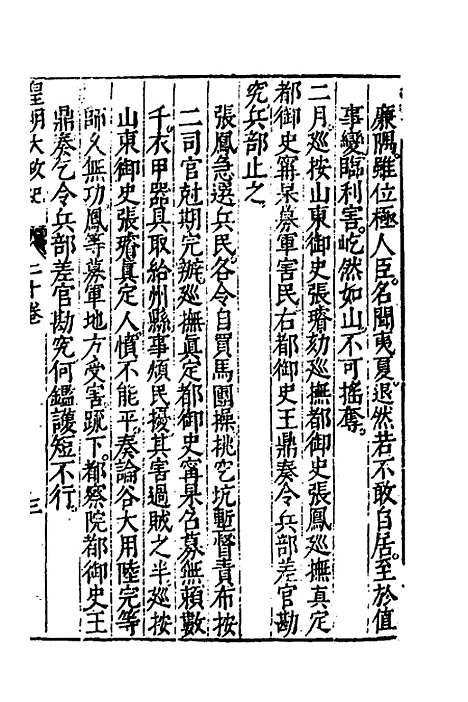 廉隅。雖位極人臣。名聞夷夏。退然若不敢自居。至於值
事變臨利害。屹然如山不可搖奪。
二月巡按山東御史張璿劾巡撫都御史張鳳巡撫真定
都御史甯杲募軍害民右都御史王鼎奏令兵部差官勘
究。兵部止之。
張鳳急選兵民。各令自買馬團操挑穵坑塹督責布按
二司官尅期完辦。巡撫真定都御史甯杲名募無賴數
千。衣甲器具取給州縣事煩民擾其害過賊之半巡按
山東御史張璿真定人憤不能平。奏論谷大用陸完等
師久無功鳳等募軍地方受害疏下。都察院都御史王
鼎奏乞令兵部差官勘究何鑑護短不行。
皇明大政記 二十卷 三